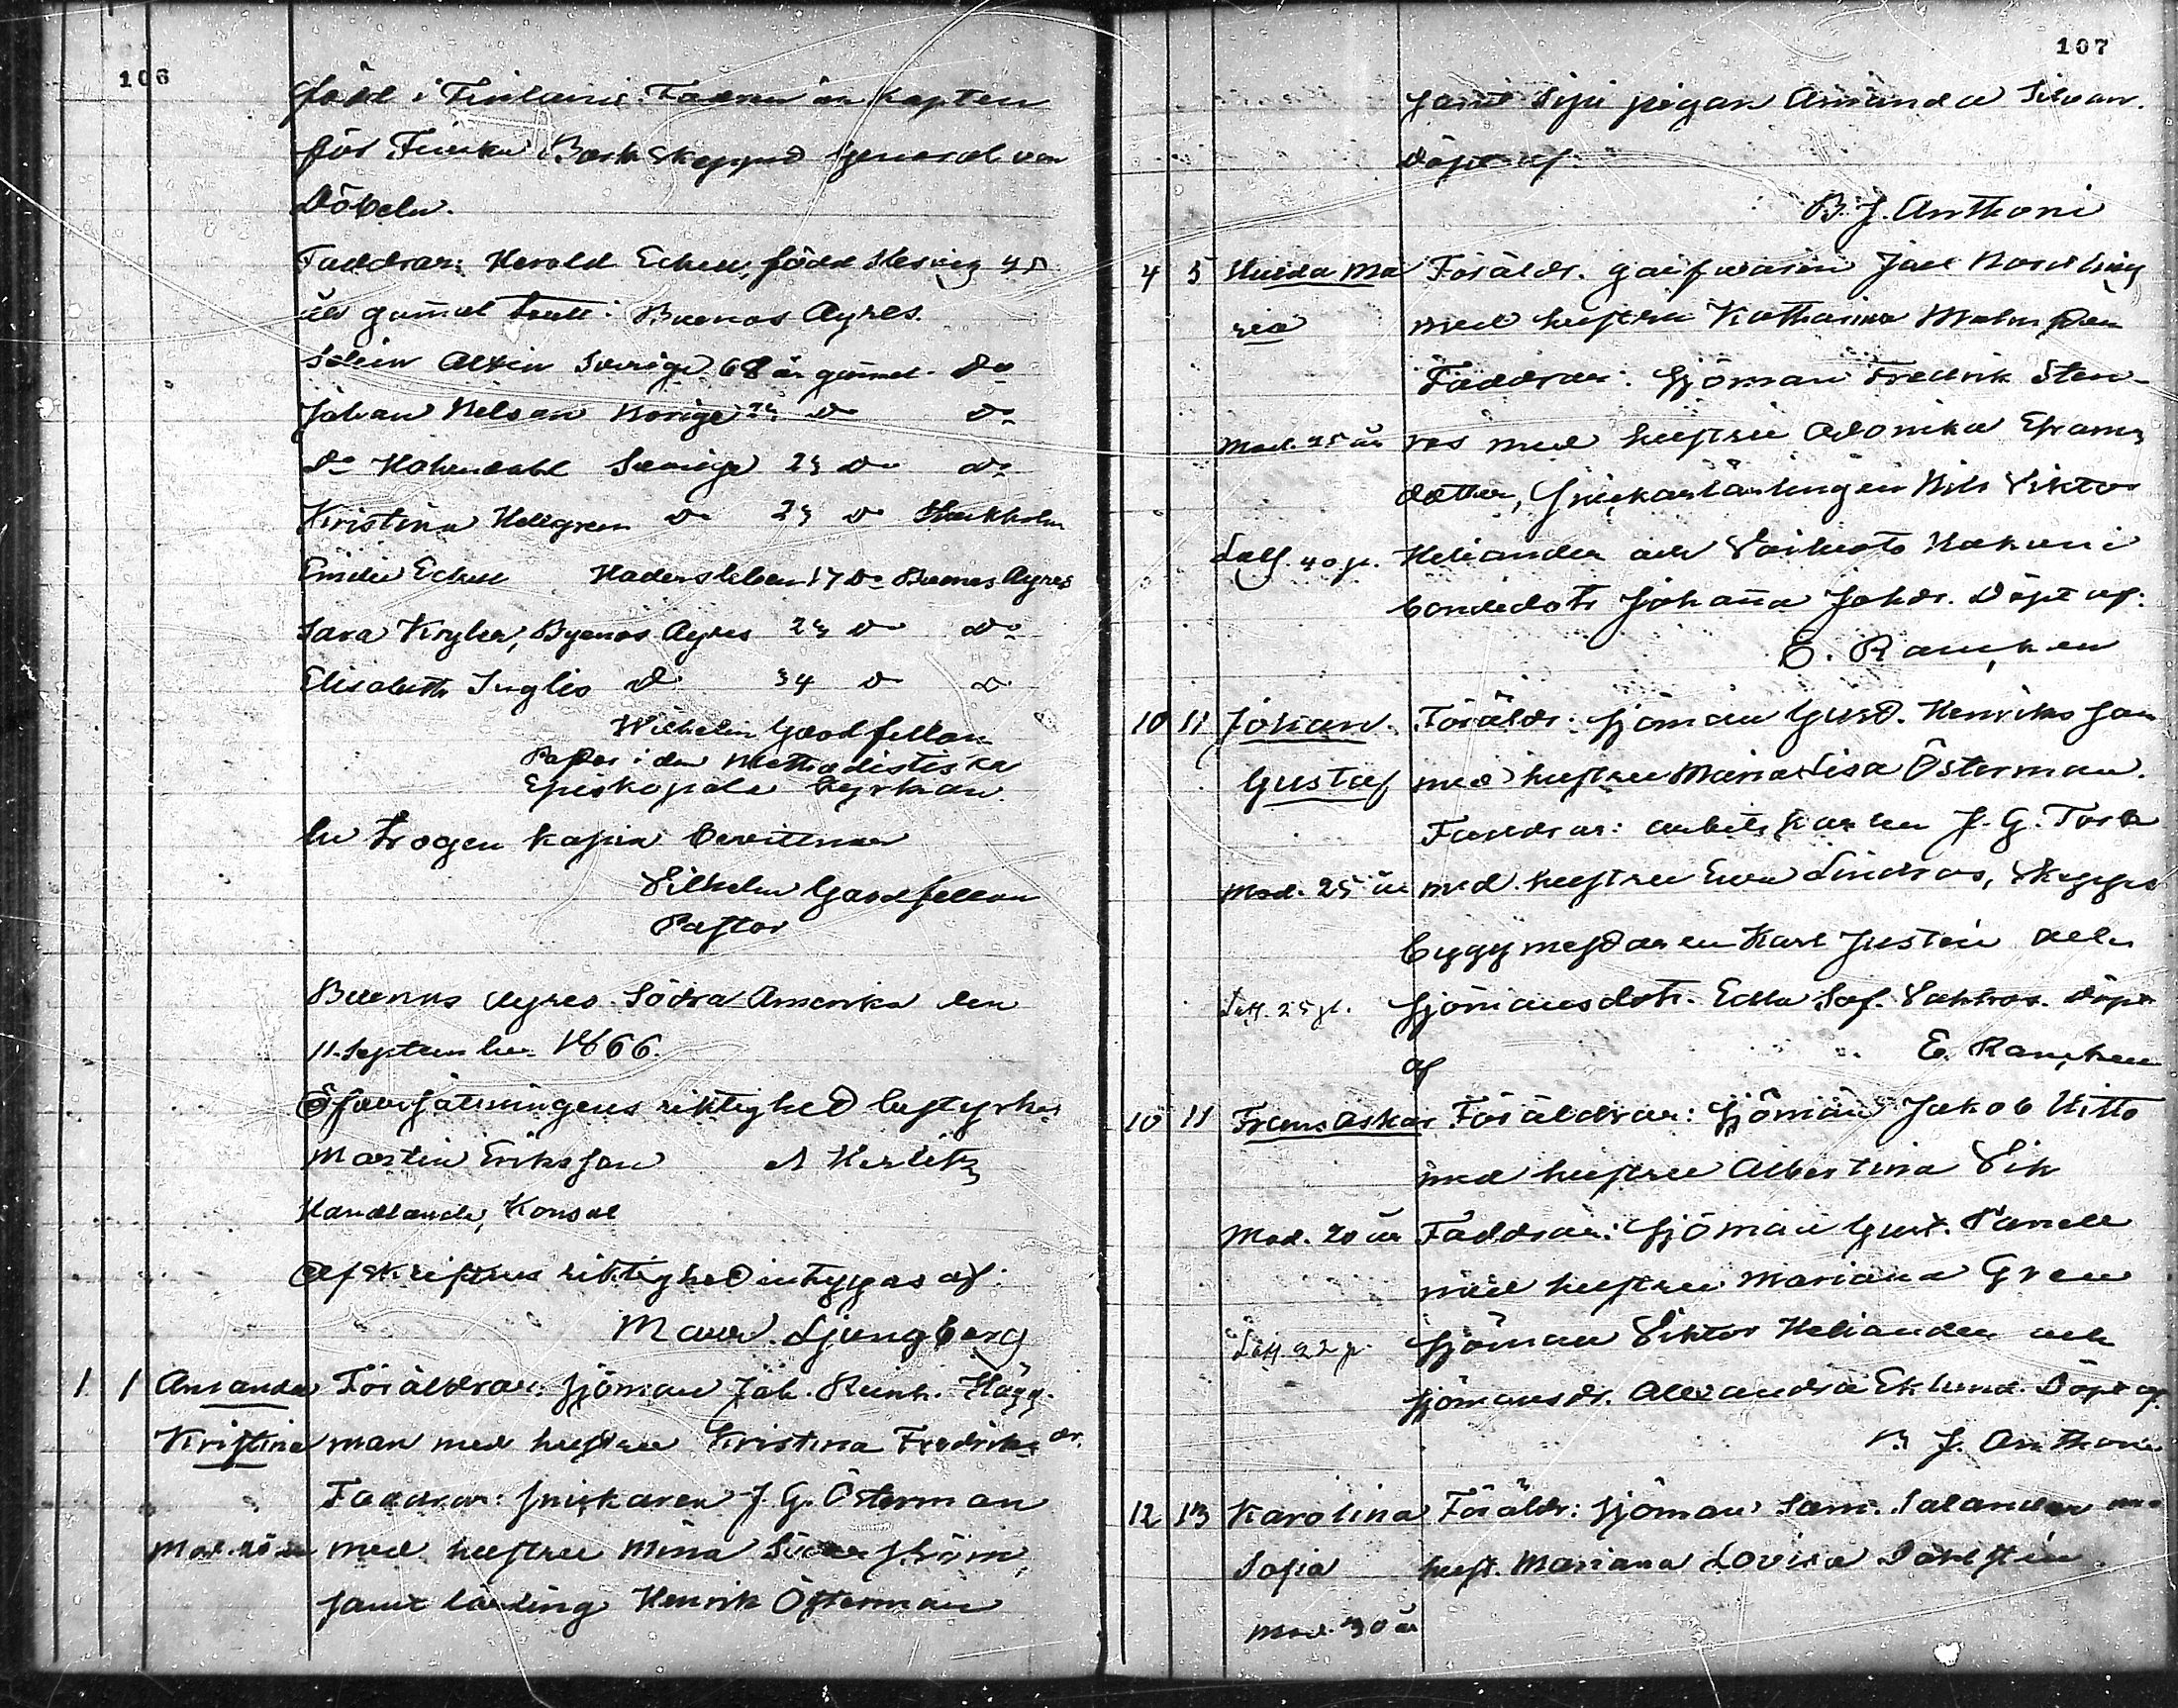 106
född i Finland. Fadren är kapten
för Finska Barkskeppet General von
Döbeln.
Faddrar: Herold Eckell, född 45
års gammal i Buenos Ayres.
Altein Sverige 68 år gammal Do
Johan Nelson Norige 24 Do Do
Do Holmdahl Sverige 23 Do Do
Kristina Hellgren Do 23 Do Stockholm
Emilie Eckell Hadersleben 17 Do Buenos Ayres
Sara Kryler, Byenos Ayres 23 Do Do
Elisabeth Inglis Do 34 Do Do
Wilhelm Goodfellow
Pastor i den Methodistiska
Episkopala Kyrkan.
En trogen kopia bevittnar
Vilhelm Goodfellow
Pastor
Buenos Ayres Södra Amerika den
11 September 1866.
Öfversättningens riktighet bestyrkes
Martin Eriksson A Herlitz
Handlande, Konsul
Afskriftens riktighet intygas af:
Maur. Ljungberg
1 1 Amanda Föräldrar: sjöman Joh. Reinh. Hägg-
Kristina man med hustru Kristina Fredriksdr.
Faddrar: snickaren J. G. Österman
Mod. år med hustru Mina Söderström,
samt lärling Henrik Österman
107
samt pigan Amanda Silvan.
Döpt af:
B. J. Anthoni
4 5 Hulda Ma Föräldr. garfvaren Joel Nordling
ria med hustru Katharina Malmsten
Faddrar: Sjöman Fredrik Sten-
Mod. 25 år ros med hustru Adonika Efraims
dotter, snickarlärlingen Nils Viktor
Lutf. 40 p. Heliander och
bondedotr Johanna Johdr. Döpt af:
E. Rancken
10 11 Johan Föräldr: sjöman Gust. Henriksson
Gustaf med hustru Maria Lisa Österman.
Faddrar: arbetskarlen J. G. Tork
Mod. 25 år med hustru Eva Lindros, Skepps
byggmästaren Karl Justén och
25 p. sjömansdotr. Edla Sof. Döpt
af E. Rancken
10 11 Frans Oskar Föräldrar: Sjöman Jakob Kitto
med hustru Albertina Vik
Mod. 20 år Faddrar: Sjöman Gust.
med hustru Mariana Gren
22 p. sjöman Viktor Heliander och
sjömansdr. Alexandra Eklund. Döpt af.
B J. Anthoni
12 13 Karolina Föräldr: Sjöman Sam. Salander med
Sofia hust. Mariana Lovisa Dahlstén
Mod. 30 år